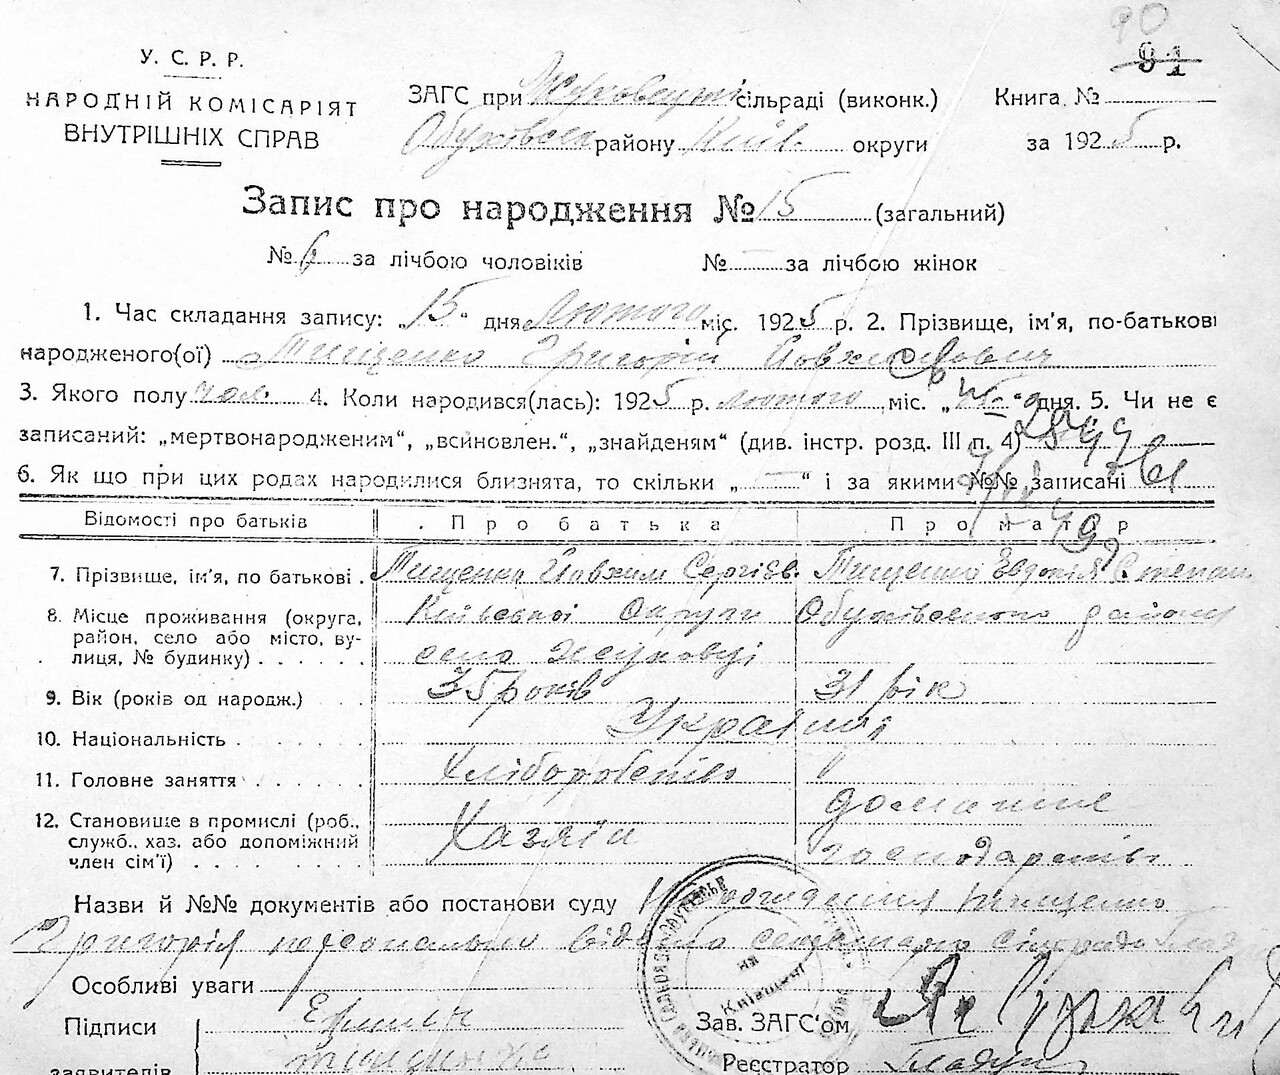 90
91
У. С. Р. Р.
НАРОДНІЙ КОМІСАРІЯТ
ВНУТРІШНІХ СПРАВ
ЗАГС при Жуковецькій сільраді (виконк.) Книга №
Обухівськ району Київ. округи за 1925 р.
Запис про народження № 15 (загальний)
№ 6 за лічбою чоловіків № — за лічбою жінок
1. Час складання запису: „15" дня Лютого міс. 1925 р. 2. Прізвище, ім'я, по-батькові
народженого(ої) Тищенко Григорій Йовхимович
3. Якого полу чол. 4. Коли народився(лась): 1925 р. лютого міс. „ " дня. 5. Чи не є
записаний: „мертвонародженим", „всиновлен.", „знайденям" (див. інстр. розд. III п. 4)
6. Як що при цих родах народилися близнята, то скільки „—" і за якими №№ записані
Відомості про батьків Про батька Про матір
7. Прізвище, ім'я, по батькові . Тищенко Йовхим Сергієв. Тищенко Евдокія Степан.
8. Місце проживання (округа, Київської Округи Обухівського району
район, село або місто, ву-
лиця, № будинку) . . . . . . село Жуковці
9. Вік (років од народж.) . . . 35 років 31 рік
10. Національність . . . . . . Українці
11. Головне заняття . . . . . . Хліборобство "
12. Становище в промислі (роб., Хазяїн домашнє
служб., хаз. або допоміжний господарство
член сім'ї) . . . . . . . .
Назви й №№ документів або постанови суду Тищенко
Григорія персонально
Особливі уваги
Підписи
Зав. ЗАГС'ом
заявителів Тищенко Реєстратор